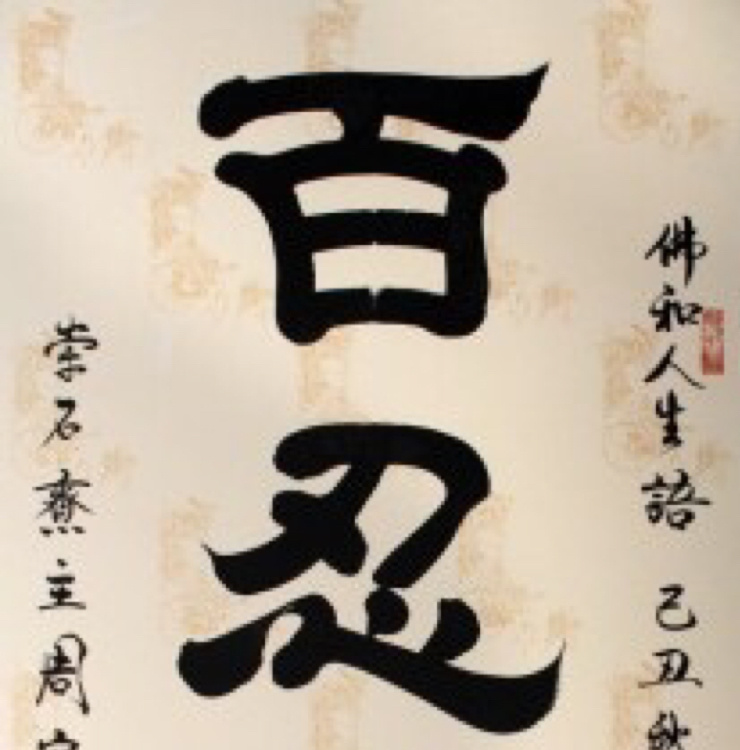 佛和人生語 己丑秋
百忍
石齋主周